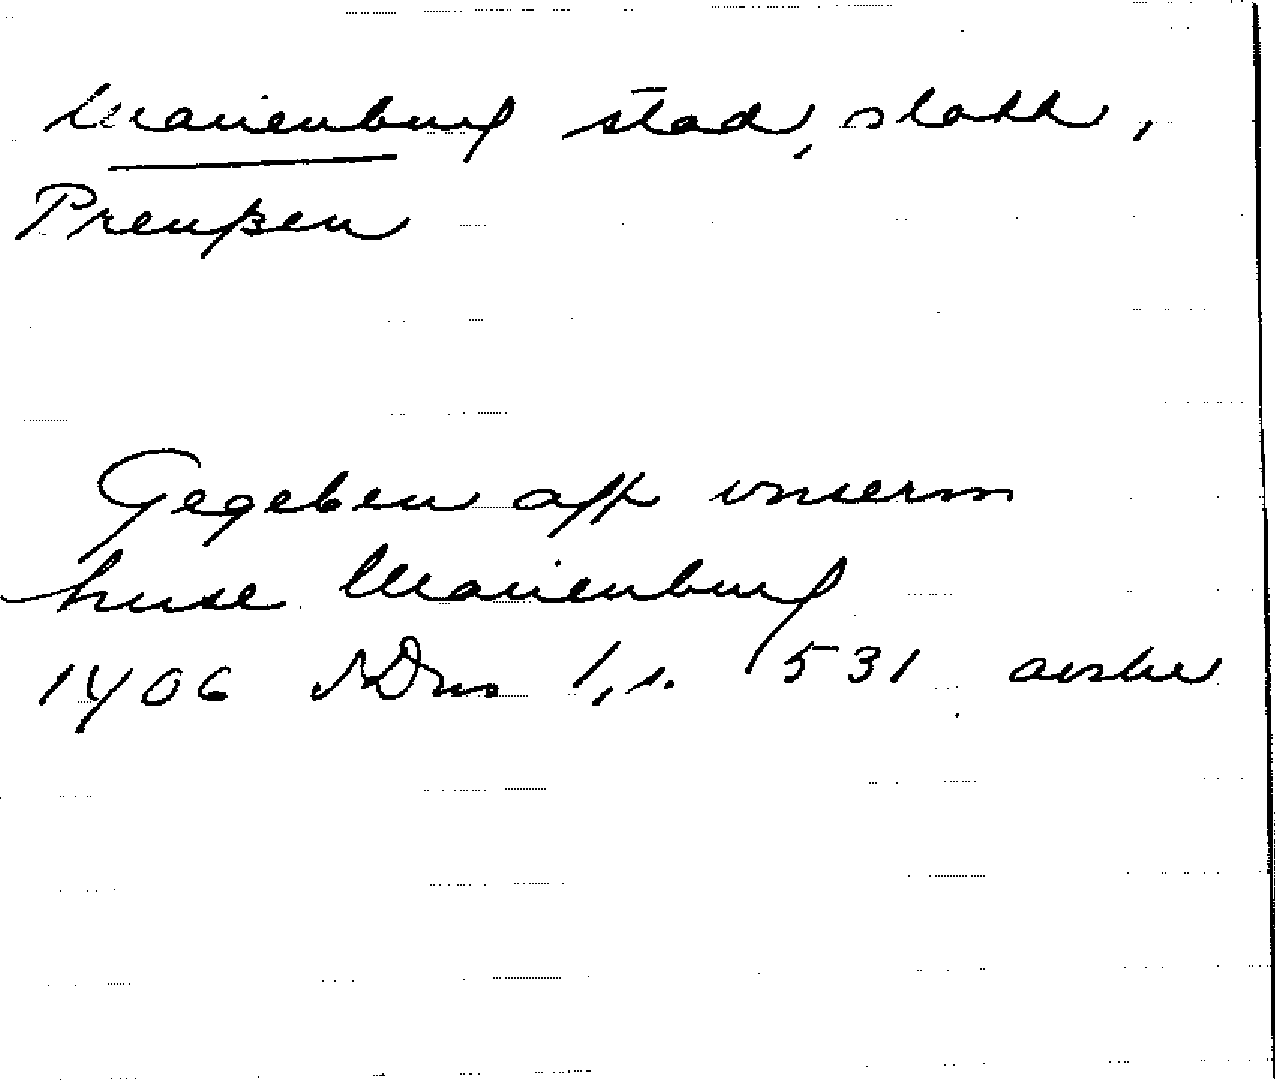 Marienburg stad, slott,
Preußen
Gegeben off vnserm
huse Marienburg
1406 SDns 1, s. 531 avskr